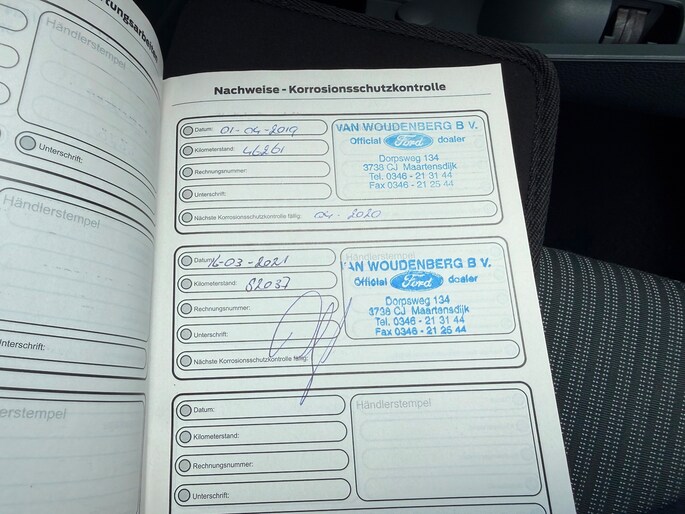 Händlerstempel
Unterschrift:
Händlerstempel
Unterschrift:
Nachweise - Korrosionsschutzkontrolle
Datum: 01-04-2019
Kilometerstand: 46261
Rechnungsnummer:
Unterschrift:
Nächste Korrosionsschutzkontrolle fällig: 04-2020
VAN WOUDENBERG B V.
Official Ford dealer
Dorpsweg 134
3738 CJ Maartensdijk
Tel. 0346 - 21 31 44
Fax 0346 - 21 25 44
Datum: 16-03-2021
Kilometerstand: 82037
Rechnungsnummer:
Unterschrift:
Nächste Korrosionsschutzkontrolle fällig:
Händlerstempel
VAN WOUDENBERG B V.
Official Ford dealer
Dorpsweg 134
3738 CJ Maartensdijk
Tel. 0346 - 21 31 44
Fax 0346 - 21 25 44
Datum:
Kilometerstand:
Rechnungsnummer:
Unterschrift:
Händlerstempel